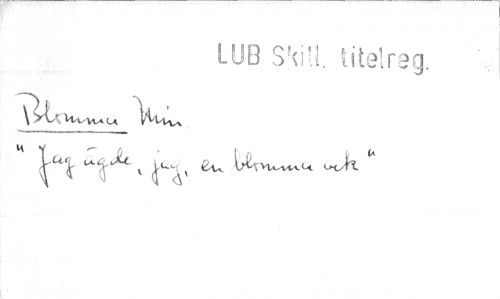 LUB Skill. titelreg.
Blomma Min
"Jag ägde, jag, en blomma vek"